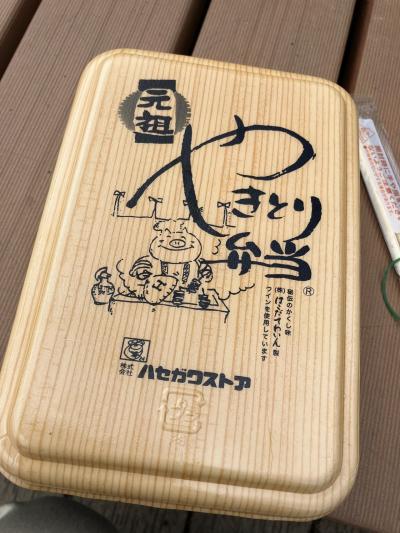 元祖
やきとり
弁当
®
秘伝のかくし味
(株)はこだてわいん製
ワインを使用しています
株式
会社
ハセガワストア